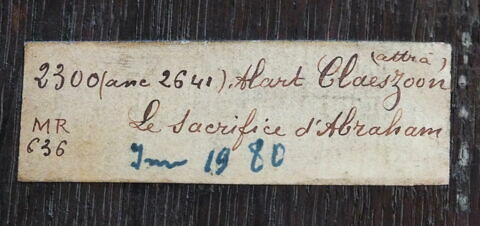 (attrà)
2300 (anc 2641). Alart Claeszoon
Le Sacrifice d'Abraham
MR
636
Inv 1980